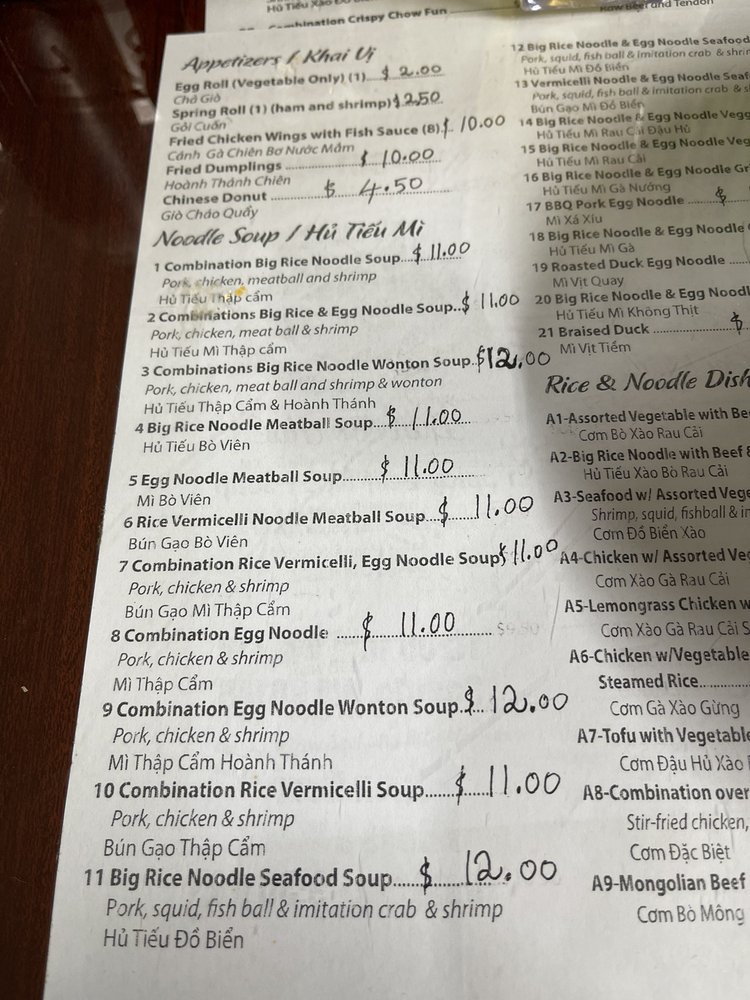 Combination Crispy Chow Fun
Raw Beef and Tendon
Appetizers / Khai Vị
Egg Roll (Vegetable Only) (1)....$ 2.00
Chả Giò
Spring Roll (1) (ham and shrimp) $2.50
Gỏi Cuốn
Fried Chicken Wings with Fish Sauce (8).$. 10.00
Cánh Gà Chiên Bơ Nước Mắm
Fried Dumplings ................$ 10.00
Hoành Thánh Chiên
Chinese Donut ........ $ 4.50
Giò Cháo Quẩy
Noodle Soup / Hủ Tiếu Mì
1 Combination Big Rice Noodle Soup...$ 11.00
Pork, chicken, meatball and shrimp
Hủ Tiếu Thập cẩm
2 Combinations Big Rice & Egg Noodle Soup..$ 11.00
Pork, chicken, meat ball & shrimp
Hủ Tiếu Mì Thập cẩm
3 Combinations Big Rice Noodle Wonton Soup.$12.00
Pork, chicken, meat ball and shrimp & wonton
Hủ Tiếu Thập Cẩm & Hoành Thánh
4 Big Rice Noodle Meatball Soup...$ 11.00
Hủ Tiếu Bò Viên
5 Egg Noodle Meatball Soup.......$ 11.00
Mì Bò Viên
6 Rice Vermicelli Noodle Meatball Soup..$ 11.00
Bún Gạo Bò Viên
7 Combination Rice Vermicelli, Egg Noodle Soup$ 11.00
Pork, chicken & shrimp
Bún Gạo Mì Thập Cẩm
8 Combination Egg Noodle .....$ 11.00
Pork, chicken & shrimp
Mì Thập Cẩm
9 Combination Egg Noodle Wonton Soup.$.. 12.00
Pork, chicken & shrimp
Mì Thập Cẩm Hoành Thánh
10 Combination Rice Vermicelli Soup.....$.....11.00
Pork, chicken & shrimp
Bún Gạo Thập Cẩm
11 Big Rice Noodle Seafood Soup....$.....12.00
Pork, squid, fish ball & imitation crab & shrimp
Hủ Tiếu Đồ Biển
12 Big Rice Noodle & Egg Noodle Seafood
Pork, squid, fish ball & imitation crab & shr
Hủ Tiếu Mì Đồ Biển
13 Vermicelli Noodle & Egg Noodle Seaf
Pork, squid, fish ball & imitation crab & s
Bún Gạo Mì Đồ Biển
14 Big Rice Noodle & Egg Noodle Vegg
Hủ Tiếu Mì Rau Cải Đậu Hủ
15 Big Rice Noodle & Egg Noodle Veg
Hủ Tiếu Mì Rau Cải
16 Big Rice Noodle & Egg Noodle Gr
Hủ Tiếu Mì Gà Nướng
17 BBQ Pork Egg Noodle ........$
Mì Xá Xíu
18 Big Rice Noodle & Egg Noodle
Hủ Tiếu Mì Gà
19 Roasted Duck Egg Noodle .....
Mì Vịt Quay
20 Big Rice Noodle & Egg Noodl
Hủ Tiếu Mì Không Thịt
21 Braised Duck ................$
Mì Vịt Tiềm
Rice & Noodle Dish
A1-Assorted Vegetable with Bee
Cơm Bò Xào Rau Cải
A2-Big Rice Noodle with Beef &
Hủ Tiếu Xào Bò Rau Cải
A3-Seafood w/ Assorted Vege
Shrimp, squid, fishball & im
Cơm Đồ Biển Xào
A4-Chicken w/ Assorted Veg
Cơm Xào Gà Rau Cải
A5-Lemongrass Chicken w
Cơm Xào Gà Rau Cải S
A6-Chicken w/Vegetable
Steamed Rice.........
Cơm Gà Xào Gừng
A7-Tofu with Vegetabl
Cơm Đậu Hủ Xào
A8-Combination over
Stir-fried chicken,
Cơm Đặc Biệt
A9-Mongolian Beef
Cơm Bò Mông